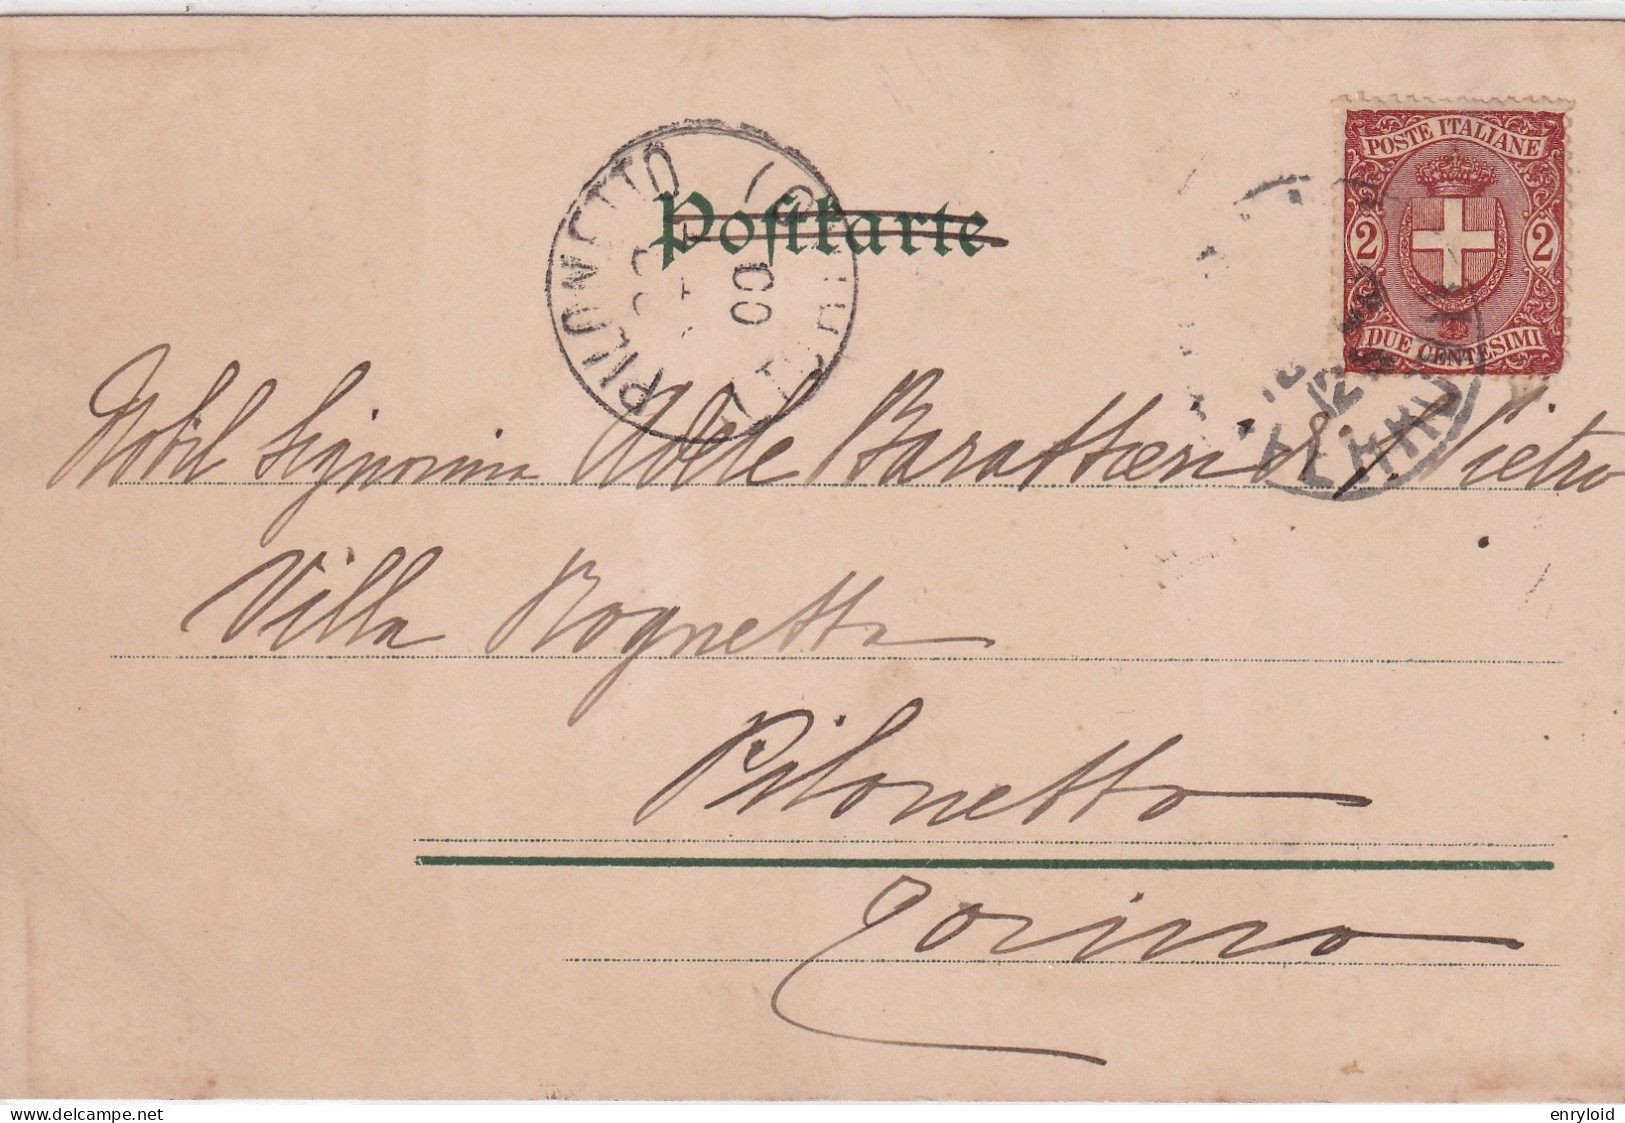 Postkarte
POSTE ITALIANE
2 2
DUE CENTESIMI
PILONETTO
Nobil Signorina Adele Barattieri di S. Pietro
Villa Rognetta
Pilonetto
Torino
delcampe.net
enryloid